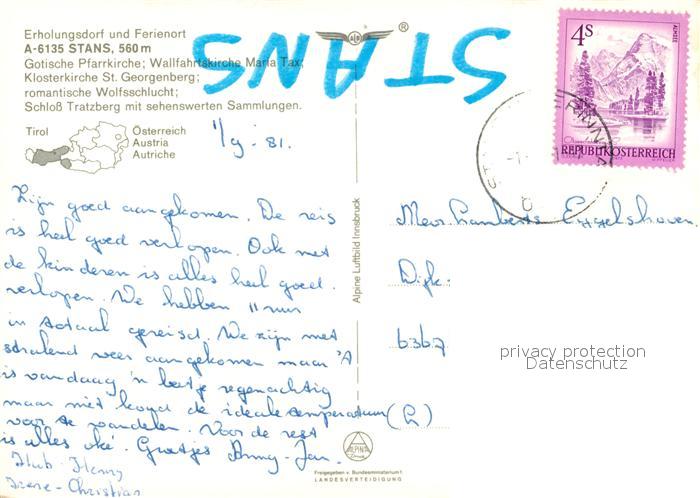 Erholungsdorf und Ferienort
A-6135 STANS, 560 m
Gotische Pfarrkirche; Wallfahrtskirche Maria Tax;
Klosterkirche St. Georgenberg;
romantische Wolfsschlucht;
Schloß Tratzberg mit sehenswerten Sammlungen.
STANS
®
Tirol
Österreich
Austria
Autriche
1/9-81.
4S
ALMSEE
REPUBLIK ÖSTERREICH
Zijn goed aangekomen. De reis
is heel goed verlopen. Ook met
de kinderen is alles heel goed
verlopen. We hebben 11 uur
in totaal gereisd. We zijn met
stralend weer aangekomen maar
is vandaag 'n beetje regenachtig
maar niet koud de ideale temperatuur
voor te wandelen. Voor de rest
is alles oké. Groetjes Anny-Jan.
Hub-Henny
Irene-Christian
Alpine Luftbild Innsbruck
Eygelshoven
Dijk:
6367
privacy protection
Datenschutz
(L)
ALPINA
Freigegeben v. Bundesministerium f.
LANDESVERTEIDIGUNG